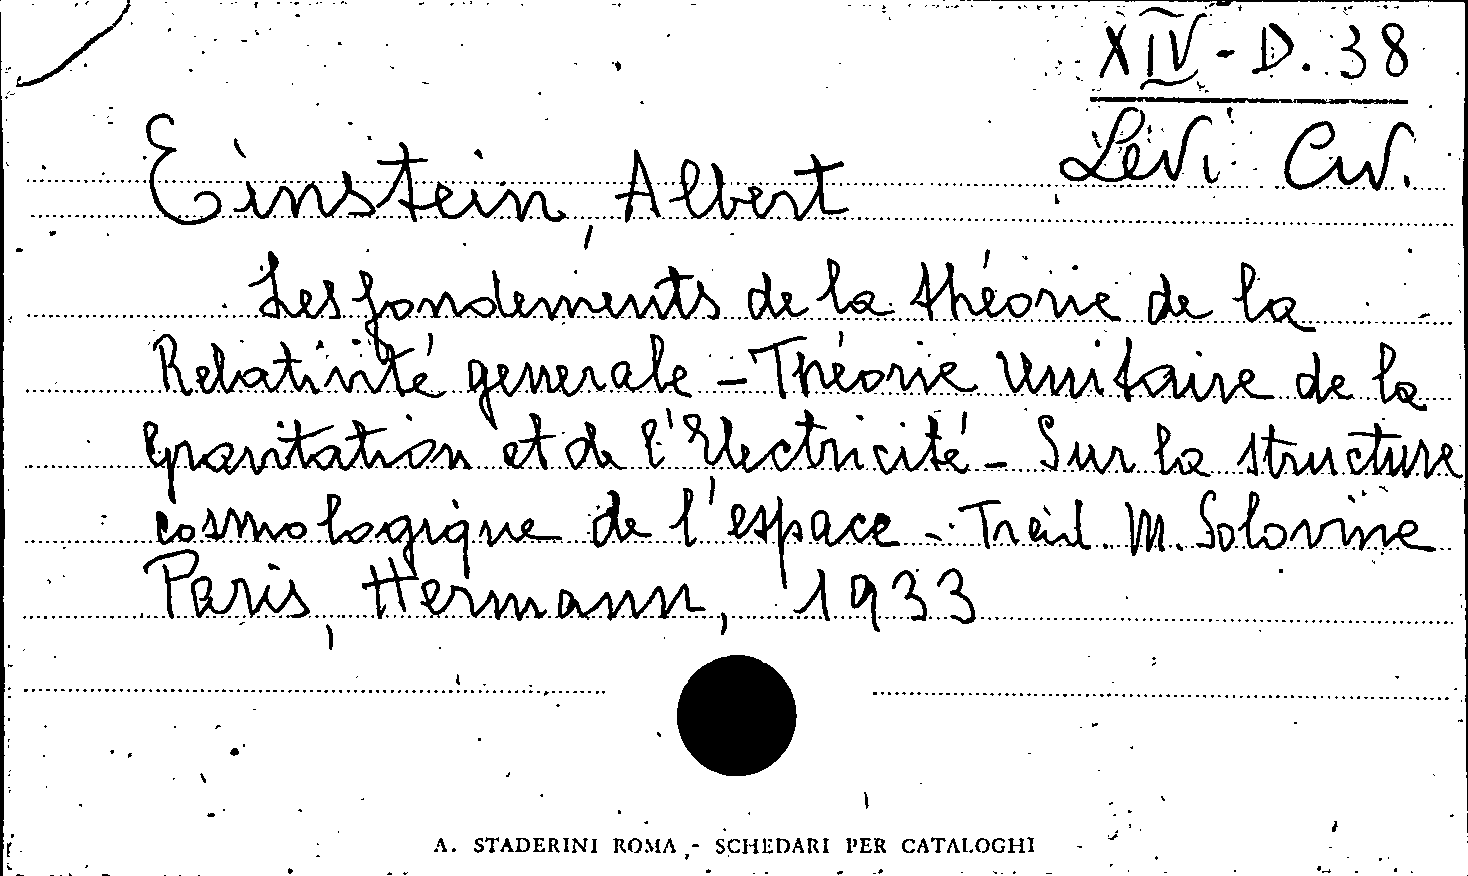 XIV - D. 38
Levi Civ.
Einstein, Albert
Les fondements de la théorie de la
Relativité generale - Théorie Unitaire de la
Gravitation et de l'Electricité - Sur la structure
cosmologique de l'espace - Trad. M. Solovine
Paris, Hermann, 1933
A. STADERINI ROMA - SCHEDARI PER CATALOGHI